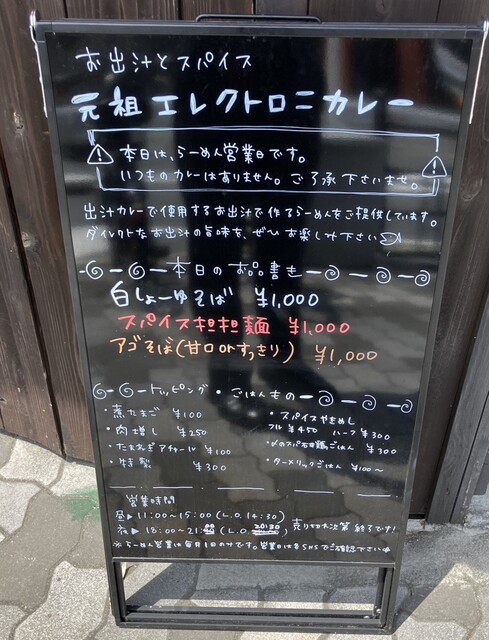 お出汁とスパイス
元祖エレクトロニカレー
本日は、らーめん営業日です。
いつものカレーはありません。ご了承下さいませ。
出汁カレーで使用するお出汁で作るらーめんをご提供しています。
ダイレクトなお出汁の旨味を、ぜひお楽しみ下さい
本日のお品書き
白しょーゆそば ¥1,000
スパイス担担麺 ¥1,000
アゴそば(甘口orすっきり) ¥1,000
トッピング・ごはんもの
・蒸たまご ¥100
・肉増し ¥250
・たまねぎアチャール ¥100
・特製 ¥300
・スパイスやきめし
フル ¥450 ハーフ ¥300
・〆のスパ石鶏ごはん ¥300
・ターメリックごはん ¥100〜
営業時間
昼▶11:00〜15:00(L.O.14:30)
夜▶18:00〜21: (L.O. ) 売り切れ次第終了です!
※らーめん営業は毎月1日のみです。営業日は各SNSでご確認下さい